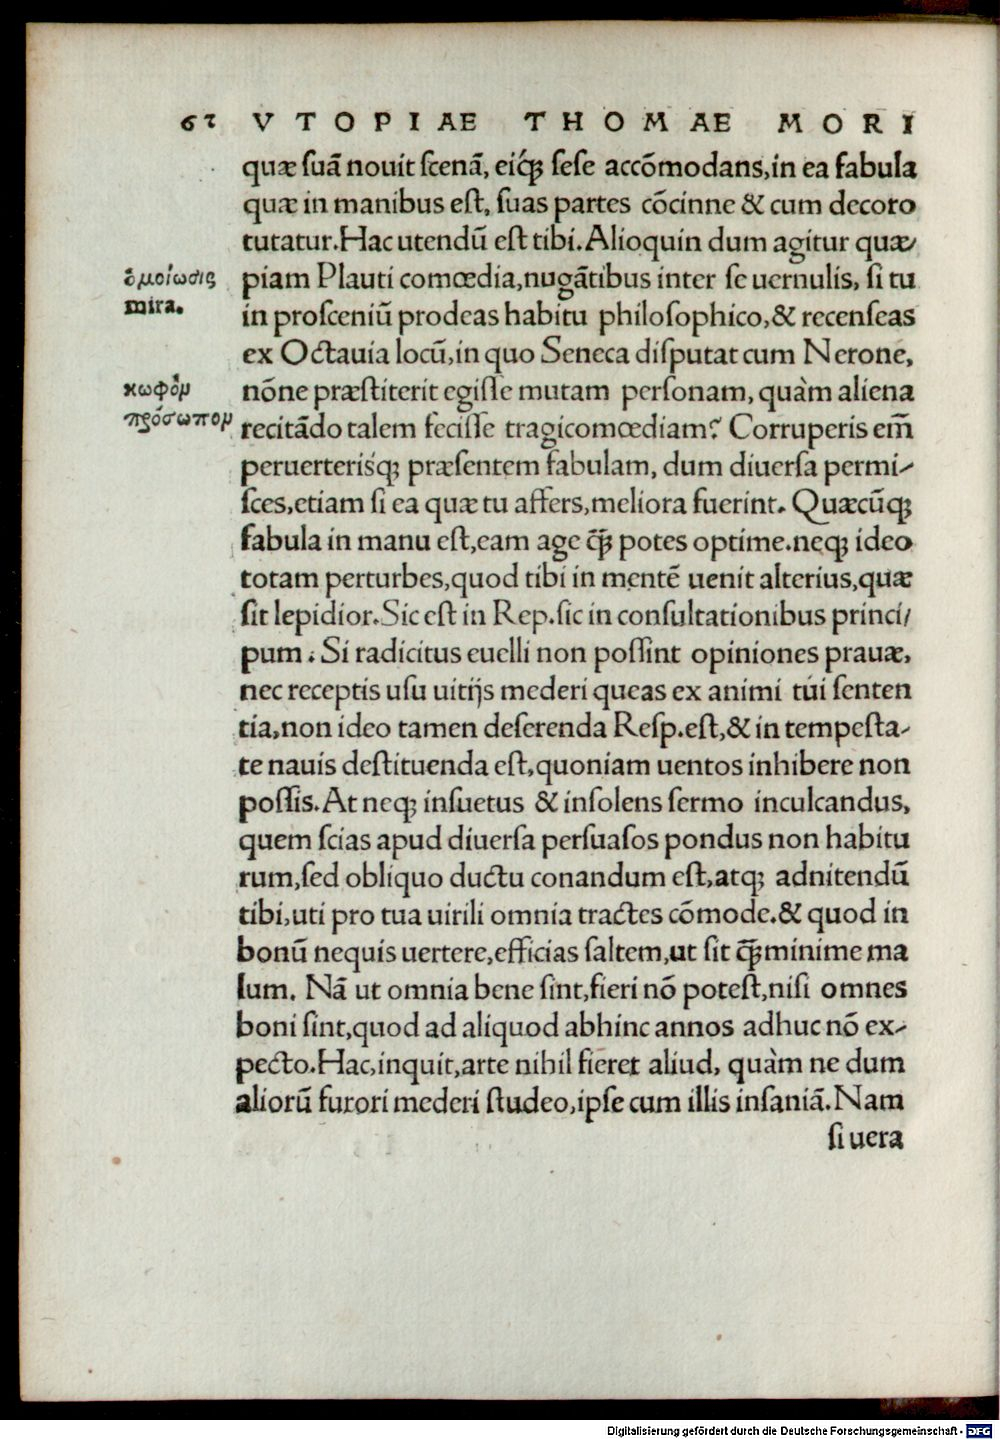 62 VTOPIAE THOMAE MORI
quæ ſuã nouit ſcenã, eiq́ꝫ ſeſe accõmodans,in ea fabula
quæ in manibus eſt, ſuas partes cõcinne & cum decoro
tutatur.Hac utendũ eſt tibi.Alioquin dum agitur quæ/
ὁμοίωσις
mira.
piam Plauti comœdia,nugãtibus inter ſe uernulis, ſi tu
in proſceniũ prodeas habitu philoſophico,& recenſeas
ex Octauia locũ,in quo Seneca diſputat cum Nerone,
κωφὸν
πρόσωπον
nõne præſtiterit egiſſe mutam perſonam, quàm aliena
recitãdo talem feciſſe tragicomœdiam? Corruperis em̃
peruerterisq́ꝫ præſentem fabulam, dum diuerſa permi-
ſces,etiam ſi ea quæ tu affers,meliora fuerint. Quæcũqꝫ
fabula in manu eſt,eam age q̃ꝫ potes optime.neqꝫ ideo
totam perturbes,quod tibi in mentẽ uenit alterius,quæ
ſit lepidior.Sic eſt in Rep.ſic in conſultationibus princi/
pum. Si radicitus euelli non poſſint opiniones prauæ,
nec receptis uſu uitijs mederi queas ex animi tui ſenten
tia,non ideo tamen deſerenda Reſp.eſt,& in tempeſta-
te nauis deſtituenda eſt,quoniam uentos inhibere non
poſſis.At neqꝫ inſuetus & inſolens ſermo inculcandus,
quem ſcias apud diuerſa perſuaſos pondus non habitu
rum,ſed obliquo ductu conandum eſt,atqꝫ adnitendũ
tibi,uti pro tua uirili omnia tractes cõmode.& quod in
bonũ nequis uertere,efficias ſaltem,ut ſit q̃ꝫ minime ma
lum. Nã ut omnia bene ſint,fieri nõ poteſt,niſi omnes
boni ſint,quod ad aliquod abhinc annos adhuc nõ ex-
pecto.Hac,inquit,arte nihil fieret aliud, quàm ne dum
aliorũ furori mederi ſtudeo,ipſe cum illis inſaniã.Nam
ſi uera
Digitalisierung gefördert durch die Deutsche Forschungsgemeinschaft - DFG